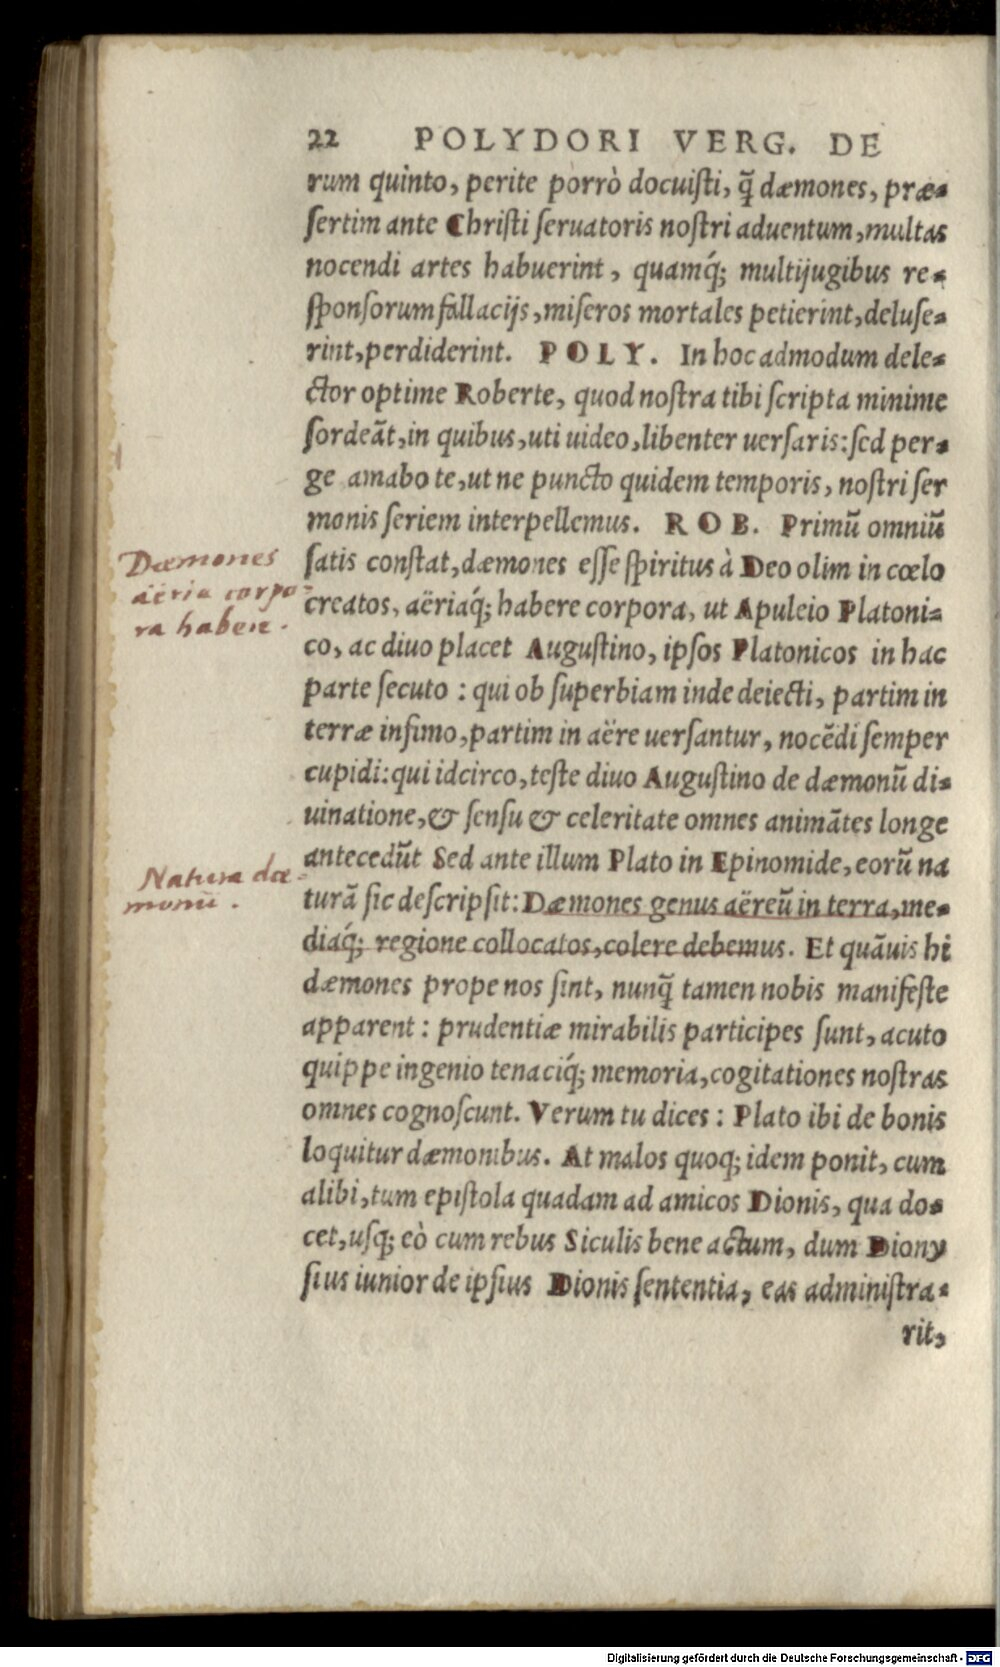 22 POLYDORI VERG. DE
rum quinto, perite porrò docuiſti, q̃ dæmones, præ-
ſertim ante Chriſti ſeruatoris noſtri aduentum, multas
nocendi artes habuerint, quamq́; multijugibus re-
ſponſorum fallacijs, miſeros mortales petierint, deluſe-
rint, perdiderint. POLY. In hoc admodum dele-
ctor optime Roberte, quod noſtra tibi ſcripta minime
ſordeãt, in quibus, uti uideo, libenter uerſaris: ſed per-
ge amabo te, ut ne puncto quidem temporis, noſtri ſer
monis ſeriem interpellemus. ROB. Primũ omniũ
ſatis conſtat, dæmones eſſe ſpiritus à Deo olim in cœlo
creatos, aëriaq́; habere corpora, ut Apuleio Platoni-
co, ac diuo placet Auguſtino, ipſos Platonicos in hac
parte ſecuto : qui ob ſuperbiam inde deiecti, partim in
terræ infimo, partim in aëre uerſantur, nocẽdi ſemper
cupidi: qui idcirco, teſte diuo Auguſtino de dæmonũ di-
uinatione, & ſenſu & celeritate omnes animãtes longe
antecedũt Sed ante illum Plato in Epinomide, eorũ na
turã ſic deſcripſit: Dæmones genus aëreũ in terra, me-
diaq́; regione collocatos, colere debemus. Et quãuis hi
dæmones prope nos ſint, nunq̃ tamen nobis manifeſte
apparent : prudentiæ mirabilis participes ſunt, acuto
quippe ingenio tenaciq́; memoria, cogitationes noſtras
omnes cognoſcunt. Verum tu dices : Plato ibi de bonis
loquitur dæmonibus. At malos quoq; idem ponit, cum
alibi, tum epiſtola quadam ad amicos Dionis, qua do-
cet, uſq; eò cum rebus Siculis bene actum, dum Diony
ſius iunior de ipſius Dionis ſententia, eas adminiſtra-
rit,
Dæmones
aëria corpo-
ra habere.
Natura dæ-
monũ.
Digitalisierung gefördert durch die Deutsche Forschungsgemeinschaft - DFG